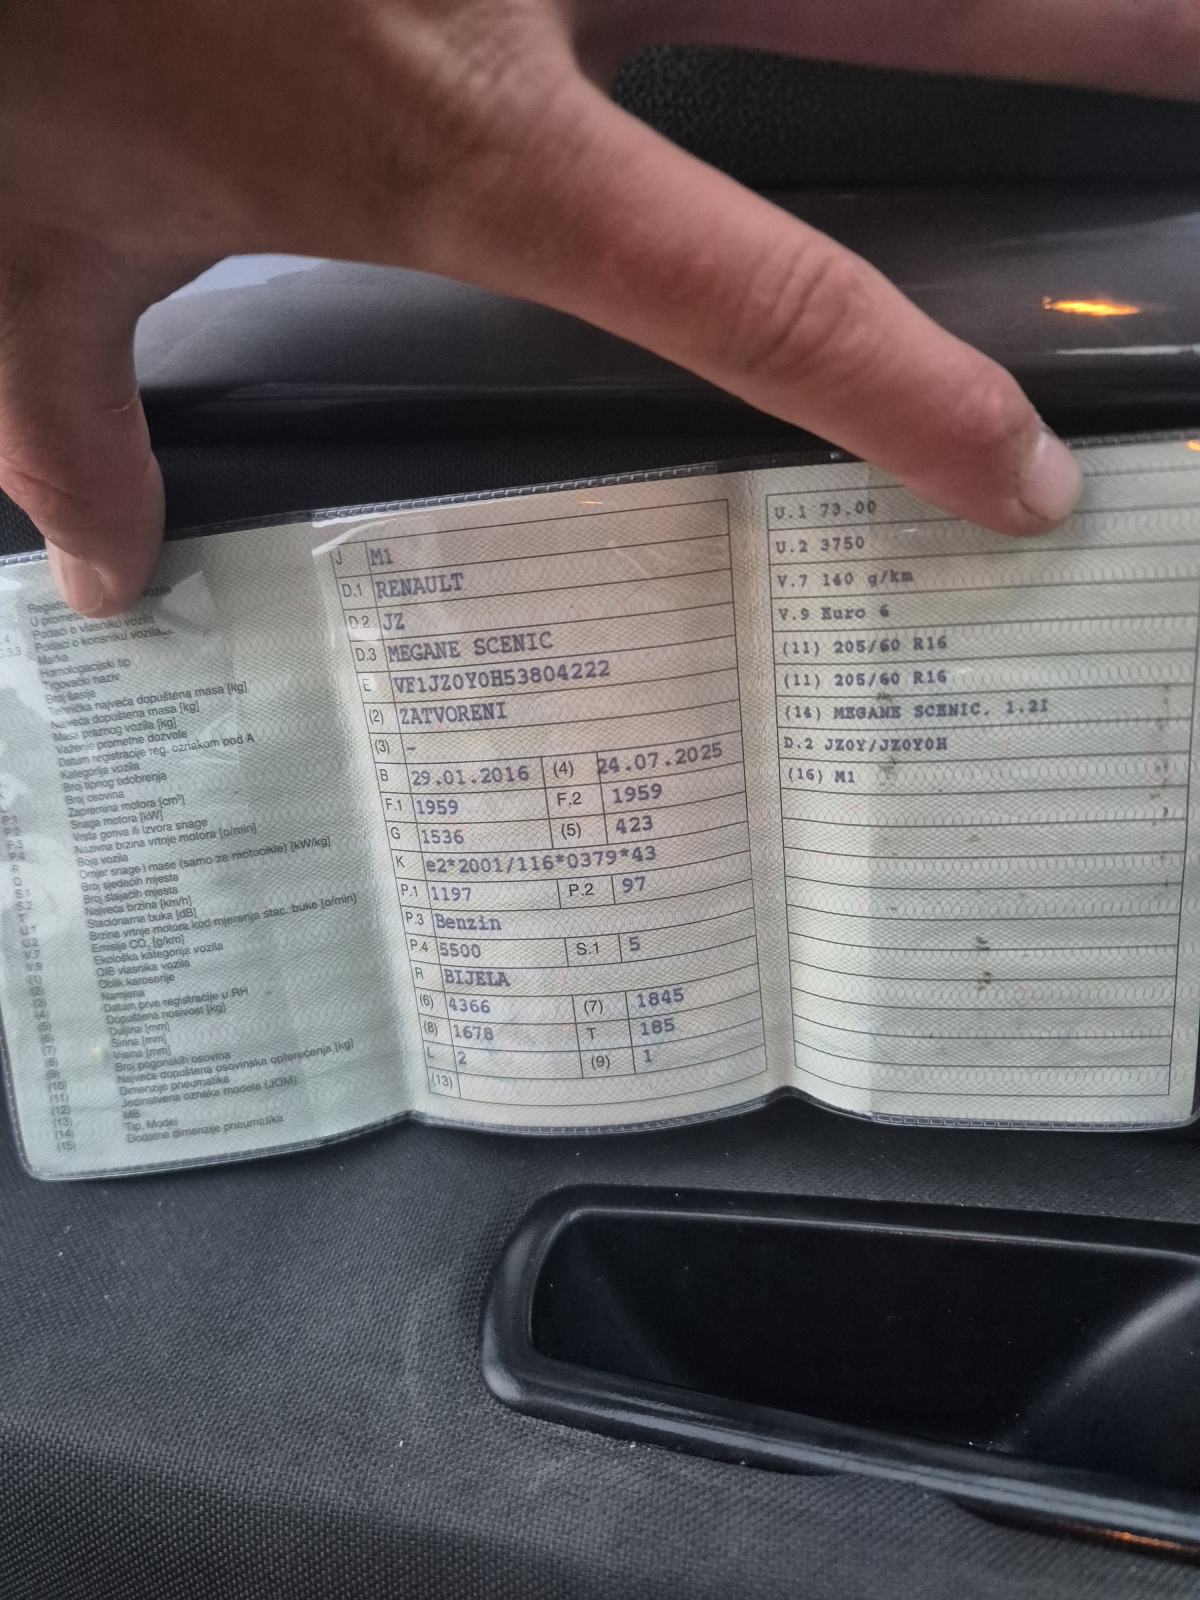 vozila
Podaci o vlasniku vozila
Podaci o korisniku vozila
Marka
Homologacijski tip
Trgovački naziv
Broj šasije
Tehnička najveća dopuštena masa [kg]
Najveća dopuštena masa [kg]
Masa praznog vozila [kg]
Važenje prometne dozvole
Datum registracije reg. oznakom pod A
Kategorija vozila
Broj tipnog odobrenja
Broj osovina
Zapremina motora [cm³]
P.2 Snaga motora [kW]
P.3 Vrsta goriva ili izvora snage
P.4 Nazivna brzina vrtnje motora [o/min]
R Boja vozila
Q Omjer snage i mase (samo za motocikle) [kW/kg]
S.1 Broj sjedećih mjesta
S.2 Broj stajaćih mjesta
T Najveća brzina [km/h]
U.1 Stacionarna buka [dB]
U.2 Brzina vrtnje motora kod mjerenja stac. buke [o/min]
V.7 Emisija CO₂ [g/km]
V.9 Ekološka kategorija vozila
(1) OIB vlasnika vozila
(2) Oblik karoserije
(3) Namjena
(4) Datum prve registracije u RH
(5) Dopuštena nosivost [kg]
(6) Duljina [mm]
(7) Širina [mm]
(8) Visina [mm]
(9) Broj pogonskih osovina
(10) Najveća dopuštena osovinska opterećenja [kg]
(11) Dimenzije pneumatika
(12) Jedinstvena oznaka modela (JOM)
(13) MB
(14) Tip, Model
(15) Dodatne dimenzije pneumatika
J M1
D.1 RENAULT
D.2 JZ
D.3 MEGANE SCENIC
E VF1JZ0Y0H53804222
(2) ZATVORENI
(3) –
B 29.01.2016 (4) 24.07.2025
F.1 1959 F.2 1959
G 1536 (5) 423
K e2*2001/116*0379*43
P.1 1197 P.2 97
P.3 Benzin
P.4 5500 S.1 5
R BIJELA
(6) 4366 (7) 1845
(8) 1678 T 185
L 2 (9) 1
(13)
U.1 73.00
U.2 3750
V.7 140 g/km
V.9 Euro 6
(11) 205/60 R16
(11) 205/60 R16
(14) MEGANE SCENIC, 1.2I
D.2 JZ0Y/JZ0Y0H
(16) M1